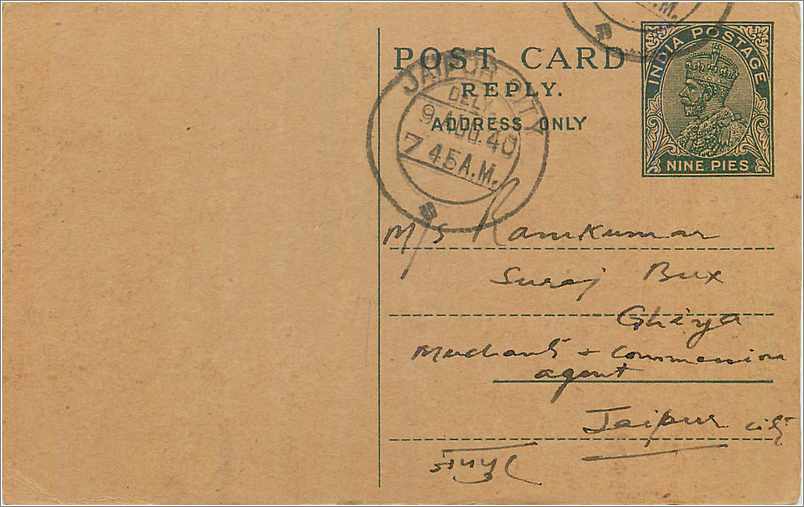 POST CARD
REPLY.
ADDRESS ONLY
INDIA POSTAGE
NINE PIES
JAIPUR CITY
DELY.
9 AUG. 40
7 45 A.M.
B
A.M.
B
M/S Ramkumar
Suraj Bux
Ghiya
Merchants & Commession
agent
Jaipur City
जयपुर